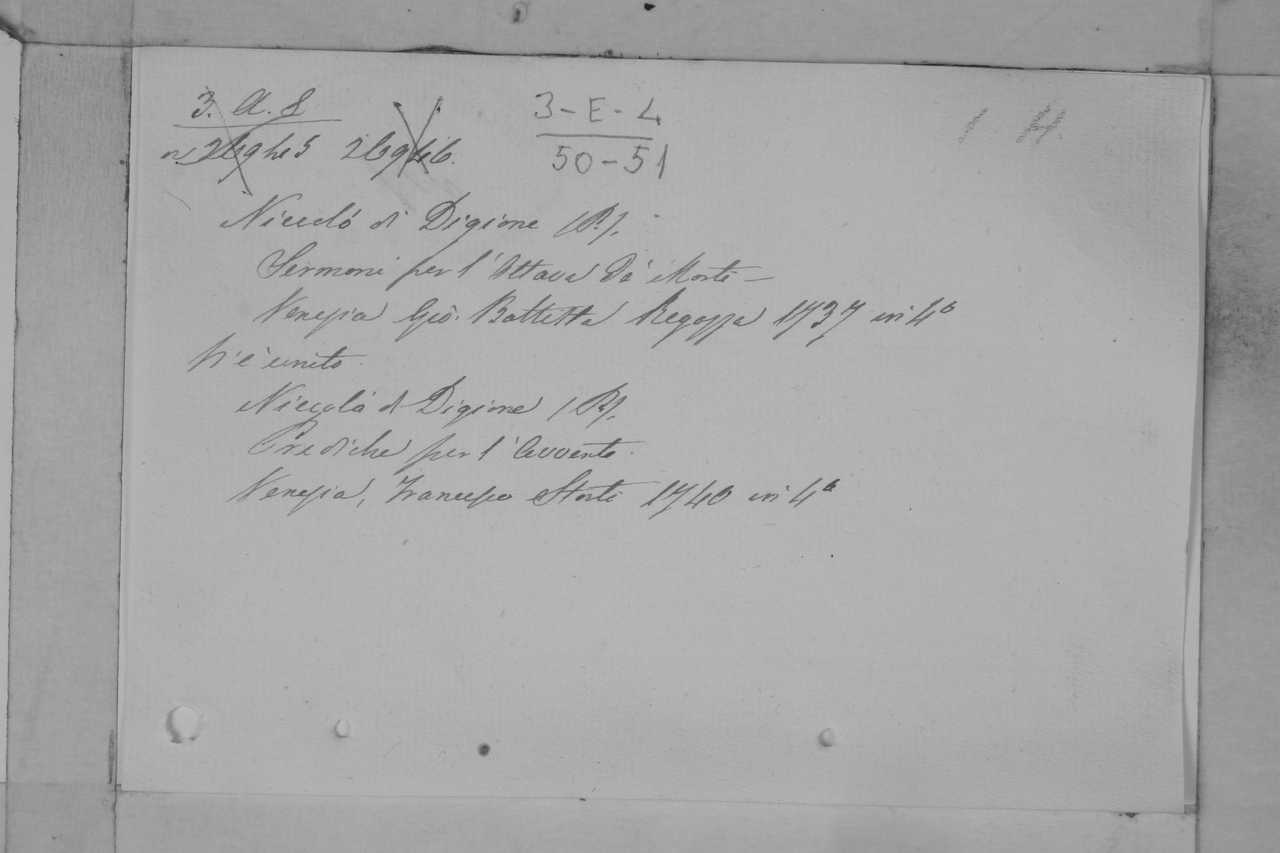 3. A. 8
3-E-4
50-51
1 H.
Niccolò di Digione (P.).
Sermoni per l'Ottava dà Morti —
Venezia Gio. Battetta Regozza 1737 in 4°
V'è unito.
Niccolà d Digione (P.).
Prediche per l'Avvento.
Venezia, Francesco Storti 1740 in 4°